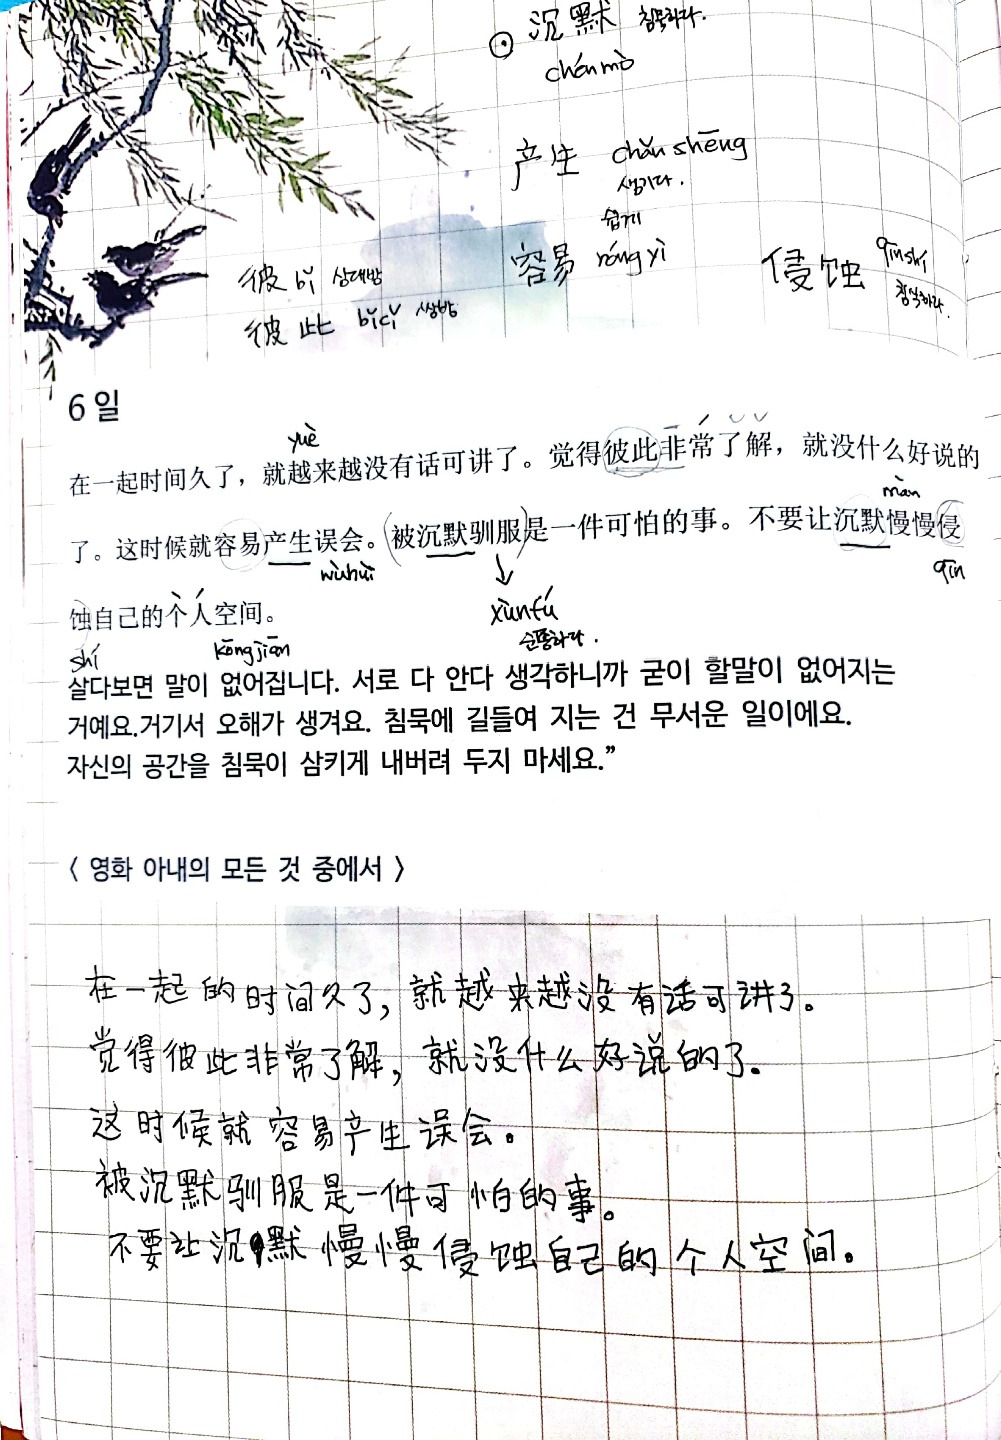 沉默 침묵하다.
chénmò
产生 chǎn shēng
생기다.
쉽게
容易 róng yì
侵蚀 qīnshí
침식하다.
彼 bǐ 상대방
彼此 bǐcǐ 쌍방
6일
yuè
在一起时间久了，就越来越没有话可讲了。觉得彼此非常了解，就没什么好说的
màn
了。这时候就容易产生误会。(被沉默驯服)是一件可怕的事。不要让沉默慢慢侵
wùhuì
qīn
xùnfú
순종하다.
蚀自己的个人空间。
shí
kōngjiān
살다보면 말이 없어집니다. 서로 다 안다 생각하니까 굳이 할말이 없어지는
거예요.거기서 오해가 생겨요. 침묵에 길들여 지는 건 무서운 일이에요.
자신의 공간을 침묵이 삼키게 내버려 두지 마세요.”
〈 영화 아내의 모든 것 중에서 〉
在一起的时间久了, 就越来越没有话可讲了。
觉得彼此非常了解, 就没什么好说的了.
这时候就容易产生误会。
被沉默驯服是一件可怕的事。
不要让沉默慢慢侵蚀自己的个人空间。